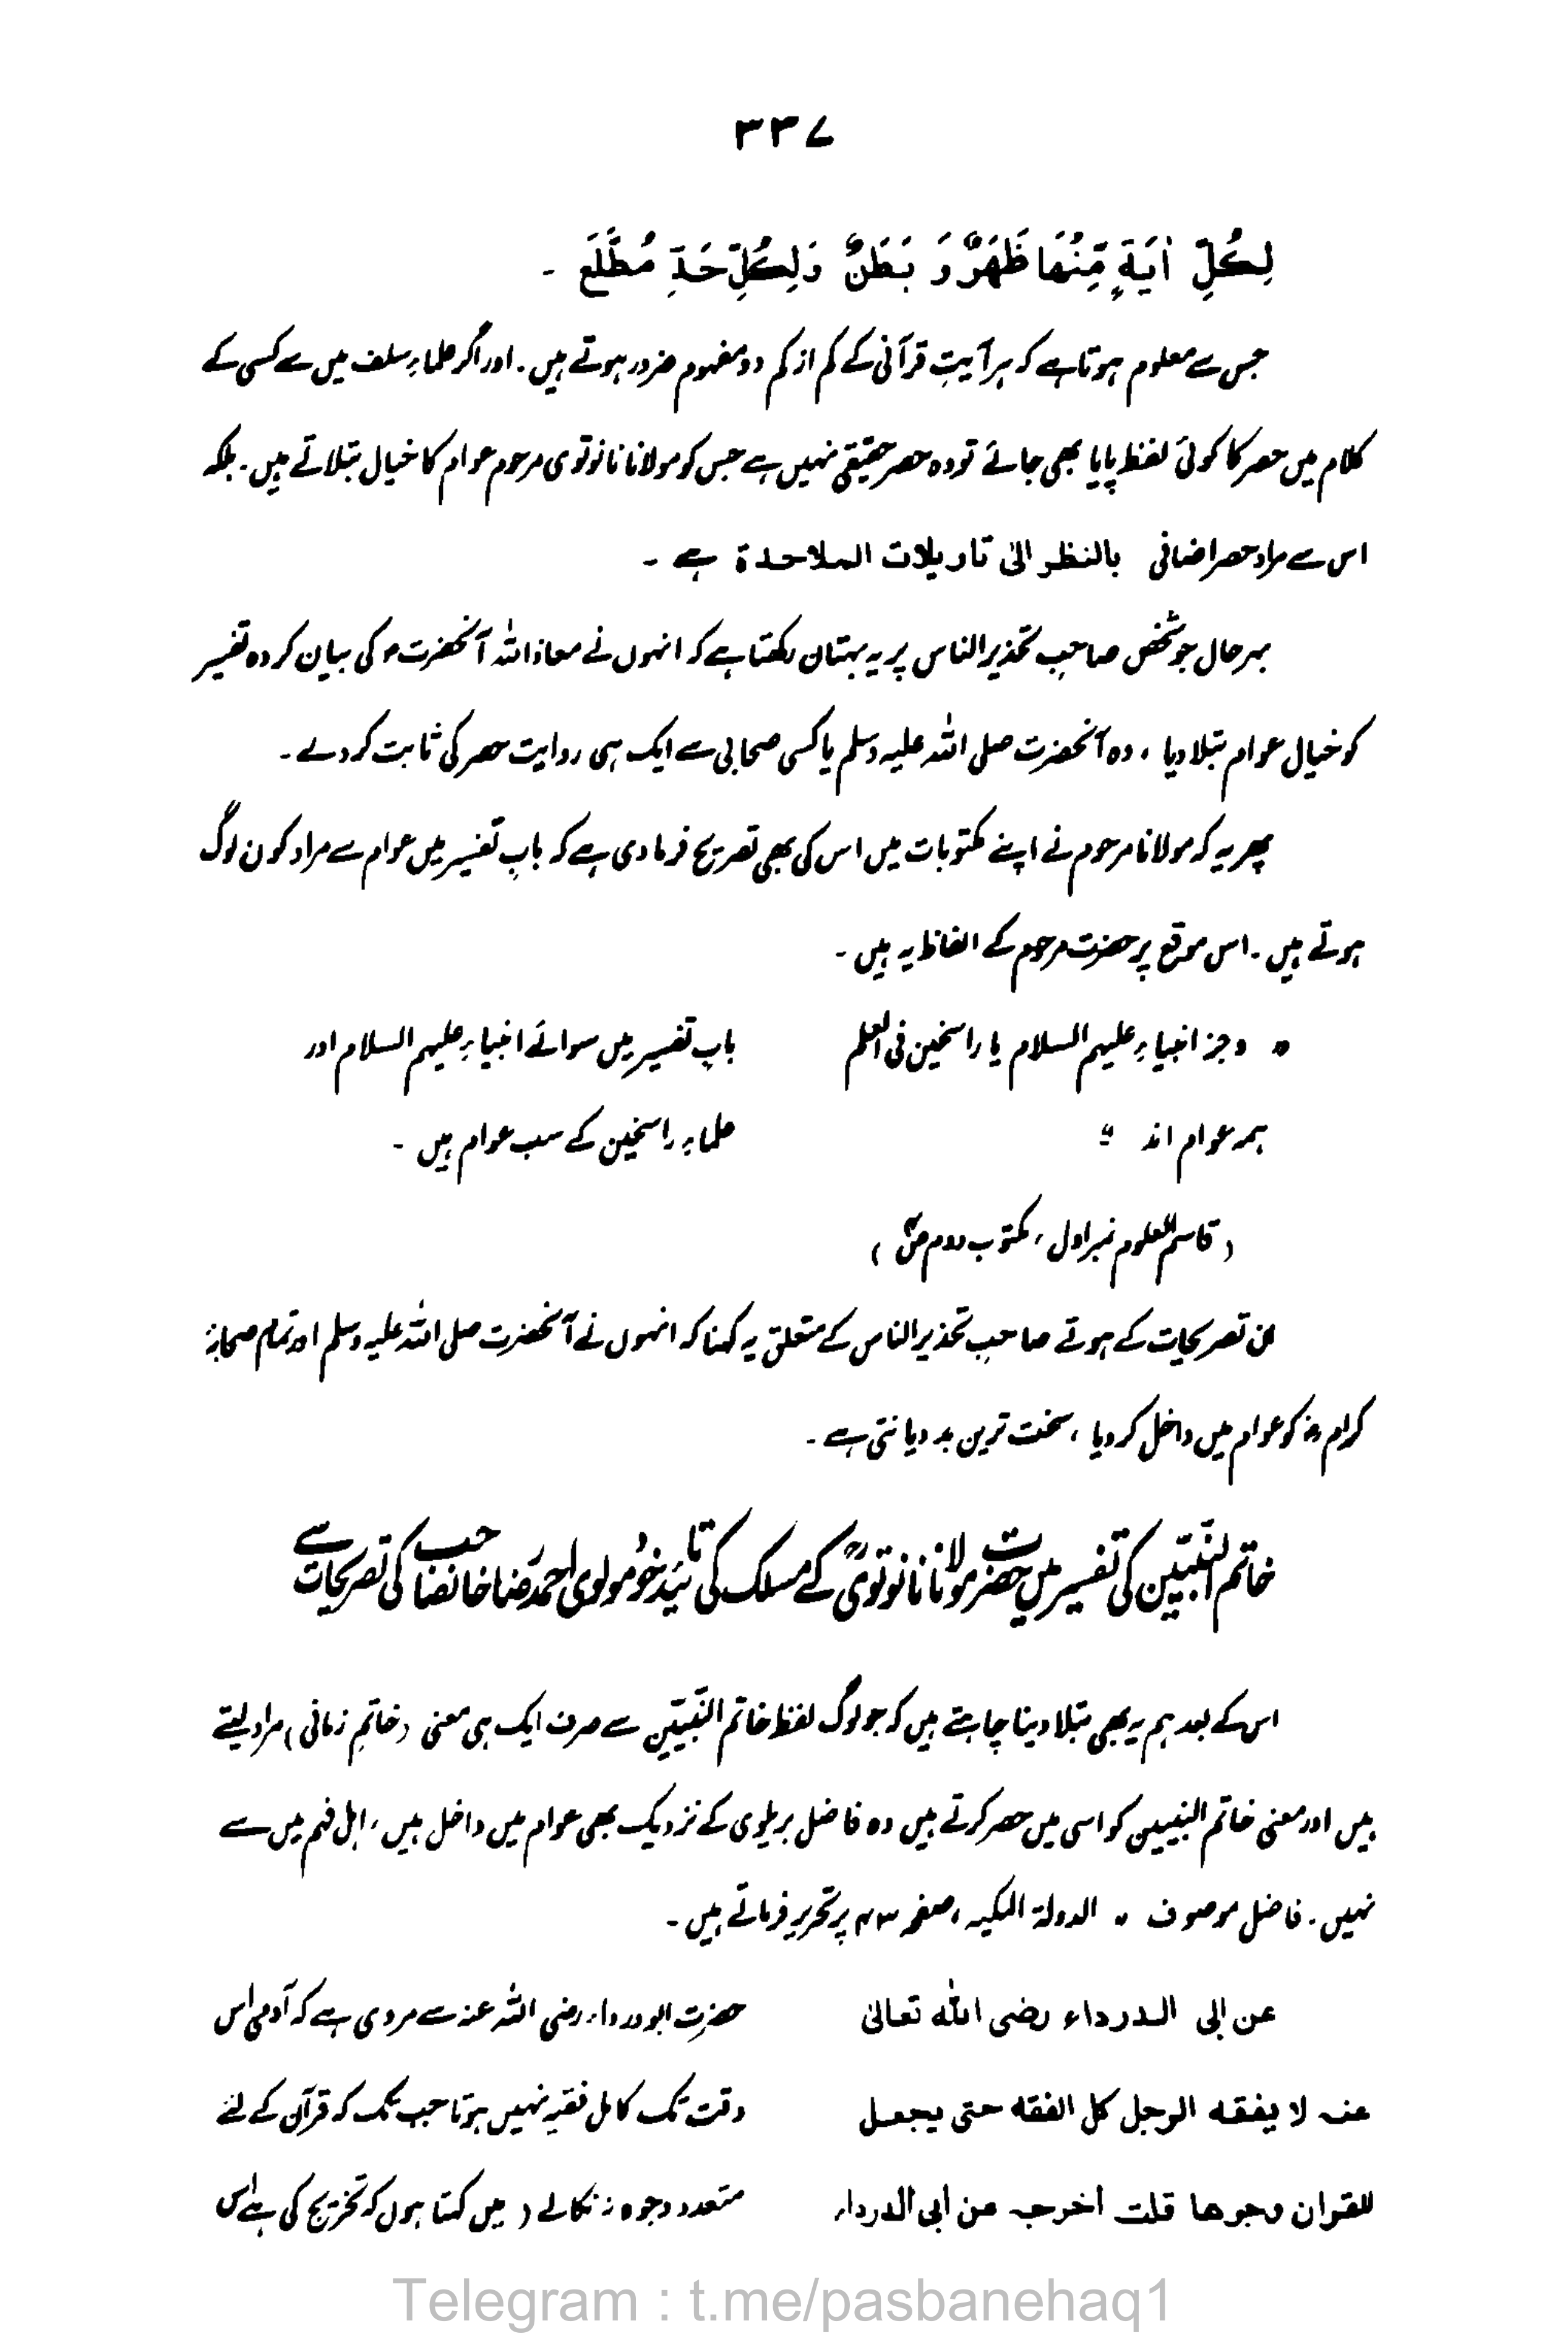 ۳۳۷
لِكُلِّ اٰيَةٍ مِّنْهَا ظَهَرٌ وَ بَطَنٌ وَلِكُلِّ حَدٍّ مُطَّلَعٌ ۔
جس سے معلوم ہوتا ہے کہ ہر آیتِ قرآنی کے کم از کم دو مفہوم ضرور ہوتے ہیں ۔ اور اگر علماءِ سلف میں سے کسی کے
کلام میں حصر کا کوئی لفظ پایا بھی جائے تو وہ حصر حقیقی نہیں ہے جس کو مولانا نانوتوی مرحوم عوام کا خیال بتلاتے ہیں ۔ بلکہ
اس سے مراد حصر اضافی بالنظر الیٰ تاویلات الملاحدة ہے ۔
بہرحال جو شخص صاحبِ تحذیر الناس پر یہ بہتان رکھتا ہے کہ انہوں نے معاذ اللہ آنحضرت ؐ کی بیان کردہ تفسیر
کو خیال عوام بتلا دیا ، وہ آنحضرت صلی اللہ علیہ وسلم یا کسی صحابی سے ایک ہی روایت حصر کی ثابت کر دے ۔
پھر یہ کہ مولانا مرحوم نے اپنے مکتوبات میں اس کی بھی تصریح فرما دی ہے کہ بابِ تفسیر میں عوام سے مراد کون لوگ
ہوتے ہیں ۔ اس موقع پر حضرت مرحوم کے الفاظ یہ ہیں ۔
" وجز انبیاءِ علیہم السلام یا راسخین فی العلم
ہمہ عوام اند "
باب تفسیر میں سوائے انبیاءِ علیہم السلام اور
علماءِ راسخین کے سب عوام ہیں ۔
( قاسم العلوم نمبر اول ، مکتوب دوم )
ان تصریحات کے ہوتے صاحبِ تحذیر الناس کے متعلق یہ کہنا کہ انہوں نے آنحضرت صلی اللہ علیہ وسلم اور تمام صحابۂ
کرام ؓ کو عوام میں داخل کر دیا ، سخت ترین بددیانتی ہے ۔
خاتم النبیّین کی تفسیر میں حضرت مولانا نانوتویؒ کے مسلک کی تائید خود مولوی احمد رضا خانصاحب کی تصریحات سے
اس کے بعد ہم یہ بھی بتلا دینا چاہتے ہیں کہ جو لوگ لفظ خاتم النّبیّین سے صرف ایک ہی معنی ( خاتمِ زمانی ) مراد لیتے
ہیں اور معنی خاتم النبیین کو اسی میں حصر کرتے ہیں وہ فاضل بریلوی کے نزدیک بھی عوام میں داخل ہیں ، اہل فہم میں سے
نہیں ۔ فاضل موصوف " الدولۃ المکیہ ، صفحہ ۴۳ پر تحریر فرماتے ہیں ۔
عن ابی الدرداء رضی الله تعالیٰ
عنه لا یفقه الرجل کل الفقه حتی یجعل
للقران وجوها قلت اخرجه عن ابی الدرداء
حضرت ابو درداء رضی اللہ عنہ سے مروی ہے کہ آدمی اس
وقت تک کامل فقیہ نہیں ہوتا جب تک کہ قرآن کے لئے
متعدد وجوہ نہ نکالے ( میں کہتا ہوں کہ تخریج کی ہے اس
Telegram : t.me/pasbanehaq1